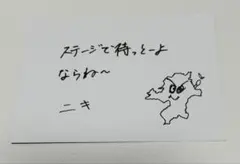 ステージで待っとーよ
ならね〜
ニキ